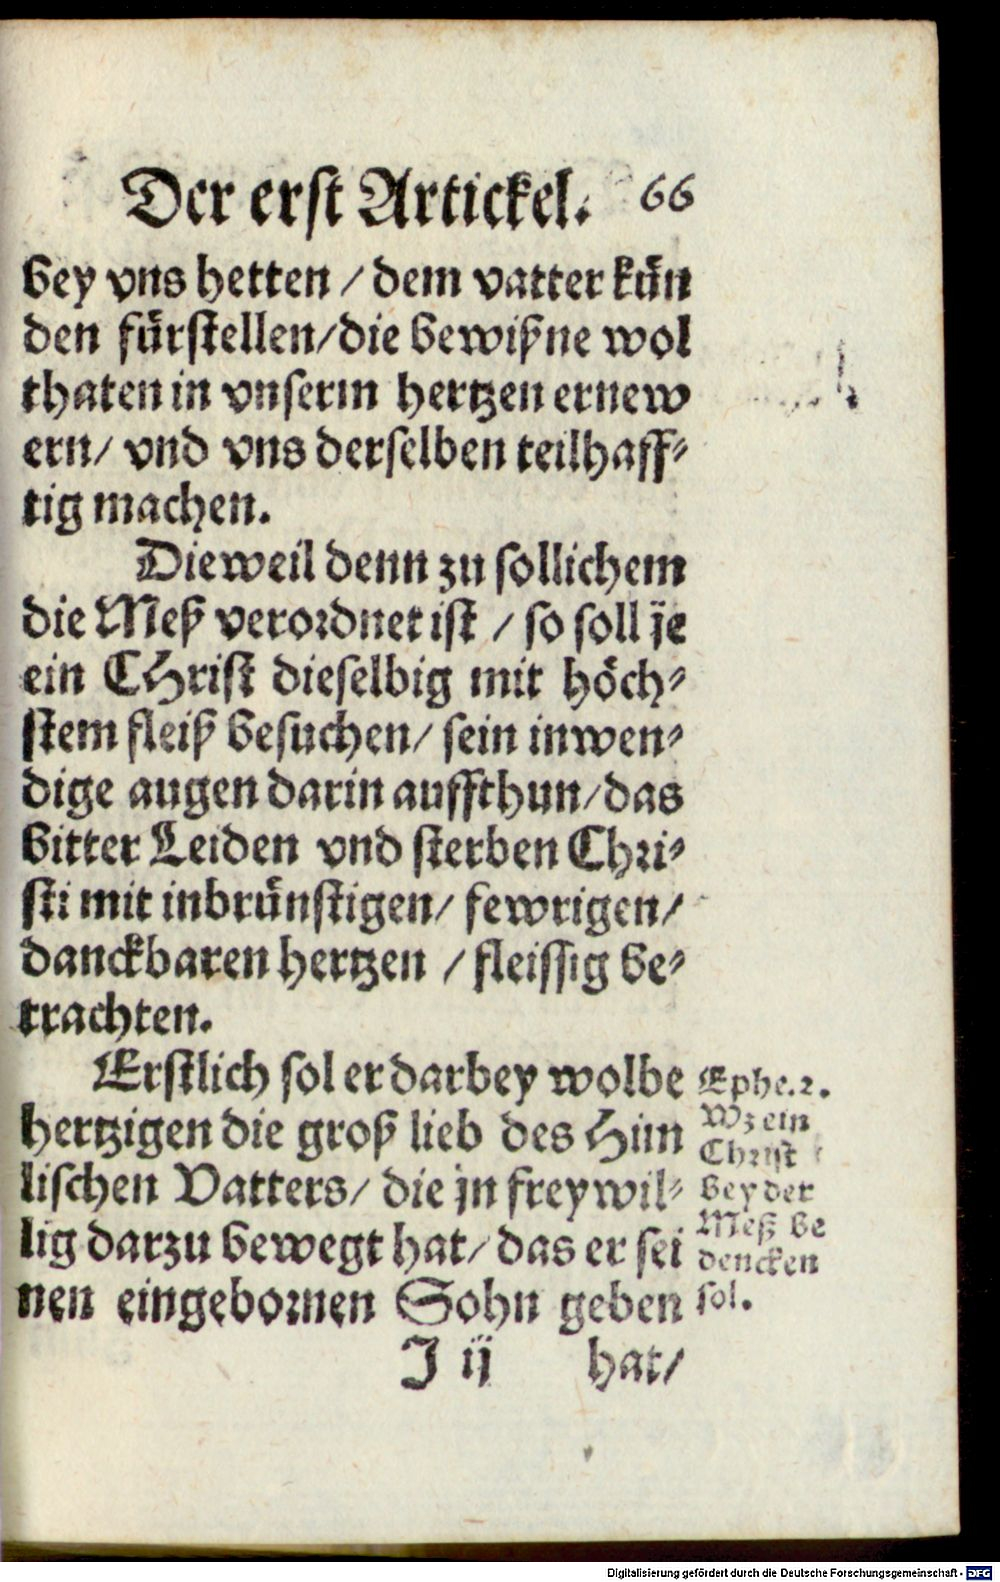 Der erst Artickel. 66
bey vns hetten / dem vatter kün
den fürstellen/die bewißne wol
thaten in vnserm hertzen ernew
ern/ vnd vns derselben teilhaff-
tig machen.
Dieweil denn zu sollichem
die Meß verordnet ist / so soll je
ein CHrist dieselbig mit höch-
stem fleiß besuchen/ sein inwen-
dige augen darin auffthun/das
bitter Leiden vnd sterben Chri-
sti mit inbrünstigen/ fewrigen/
danckbaren hertzen / fleissig be-
trachten.
Erstlich sol er darbey wolbe
hertzigen die groß lieb des Him
lischen Vatters/ die jn freywil-
lig darzu bewegt hat/ das er sei
nen eingebornen Sohn geben
Ephe.2.
Wz ein
Christ
bey der
Meß be
dencken
sol.
J ij hat/
Digitalisierung gefördert durch die Deutsche Forschungsgemeinschaft - DFG